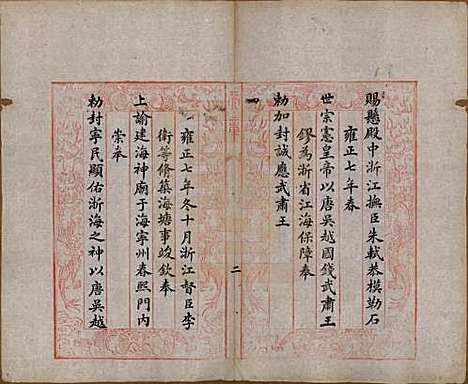 賜懸殿中浙江撫臣朱軾恭模勒石
雍正七年春
世宗憲皇帝以唐吳越國錢武肅王
鏐為浙省江海保障奉
勅加封誠應武肅王
一
雍正七年冬十月浙江督臣李
衛等修築海塘事竣欽奉
上諭建海神廟于海寧州春熙門內
崇奉
勅封寧民顯佑浙海之神以唐吳越
二